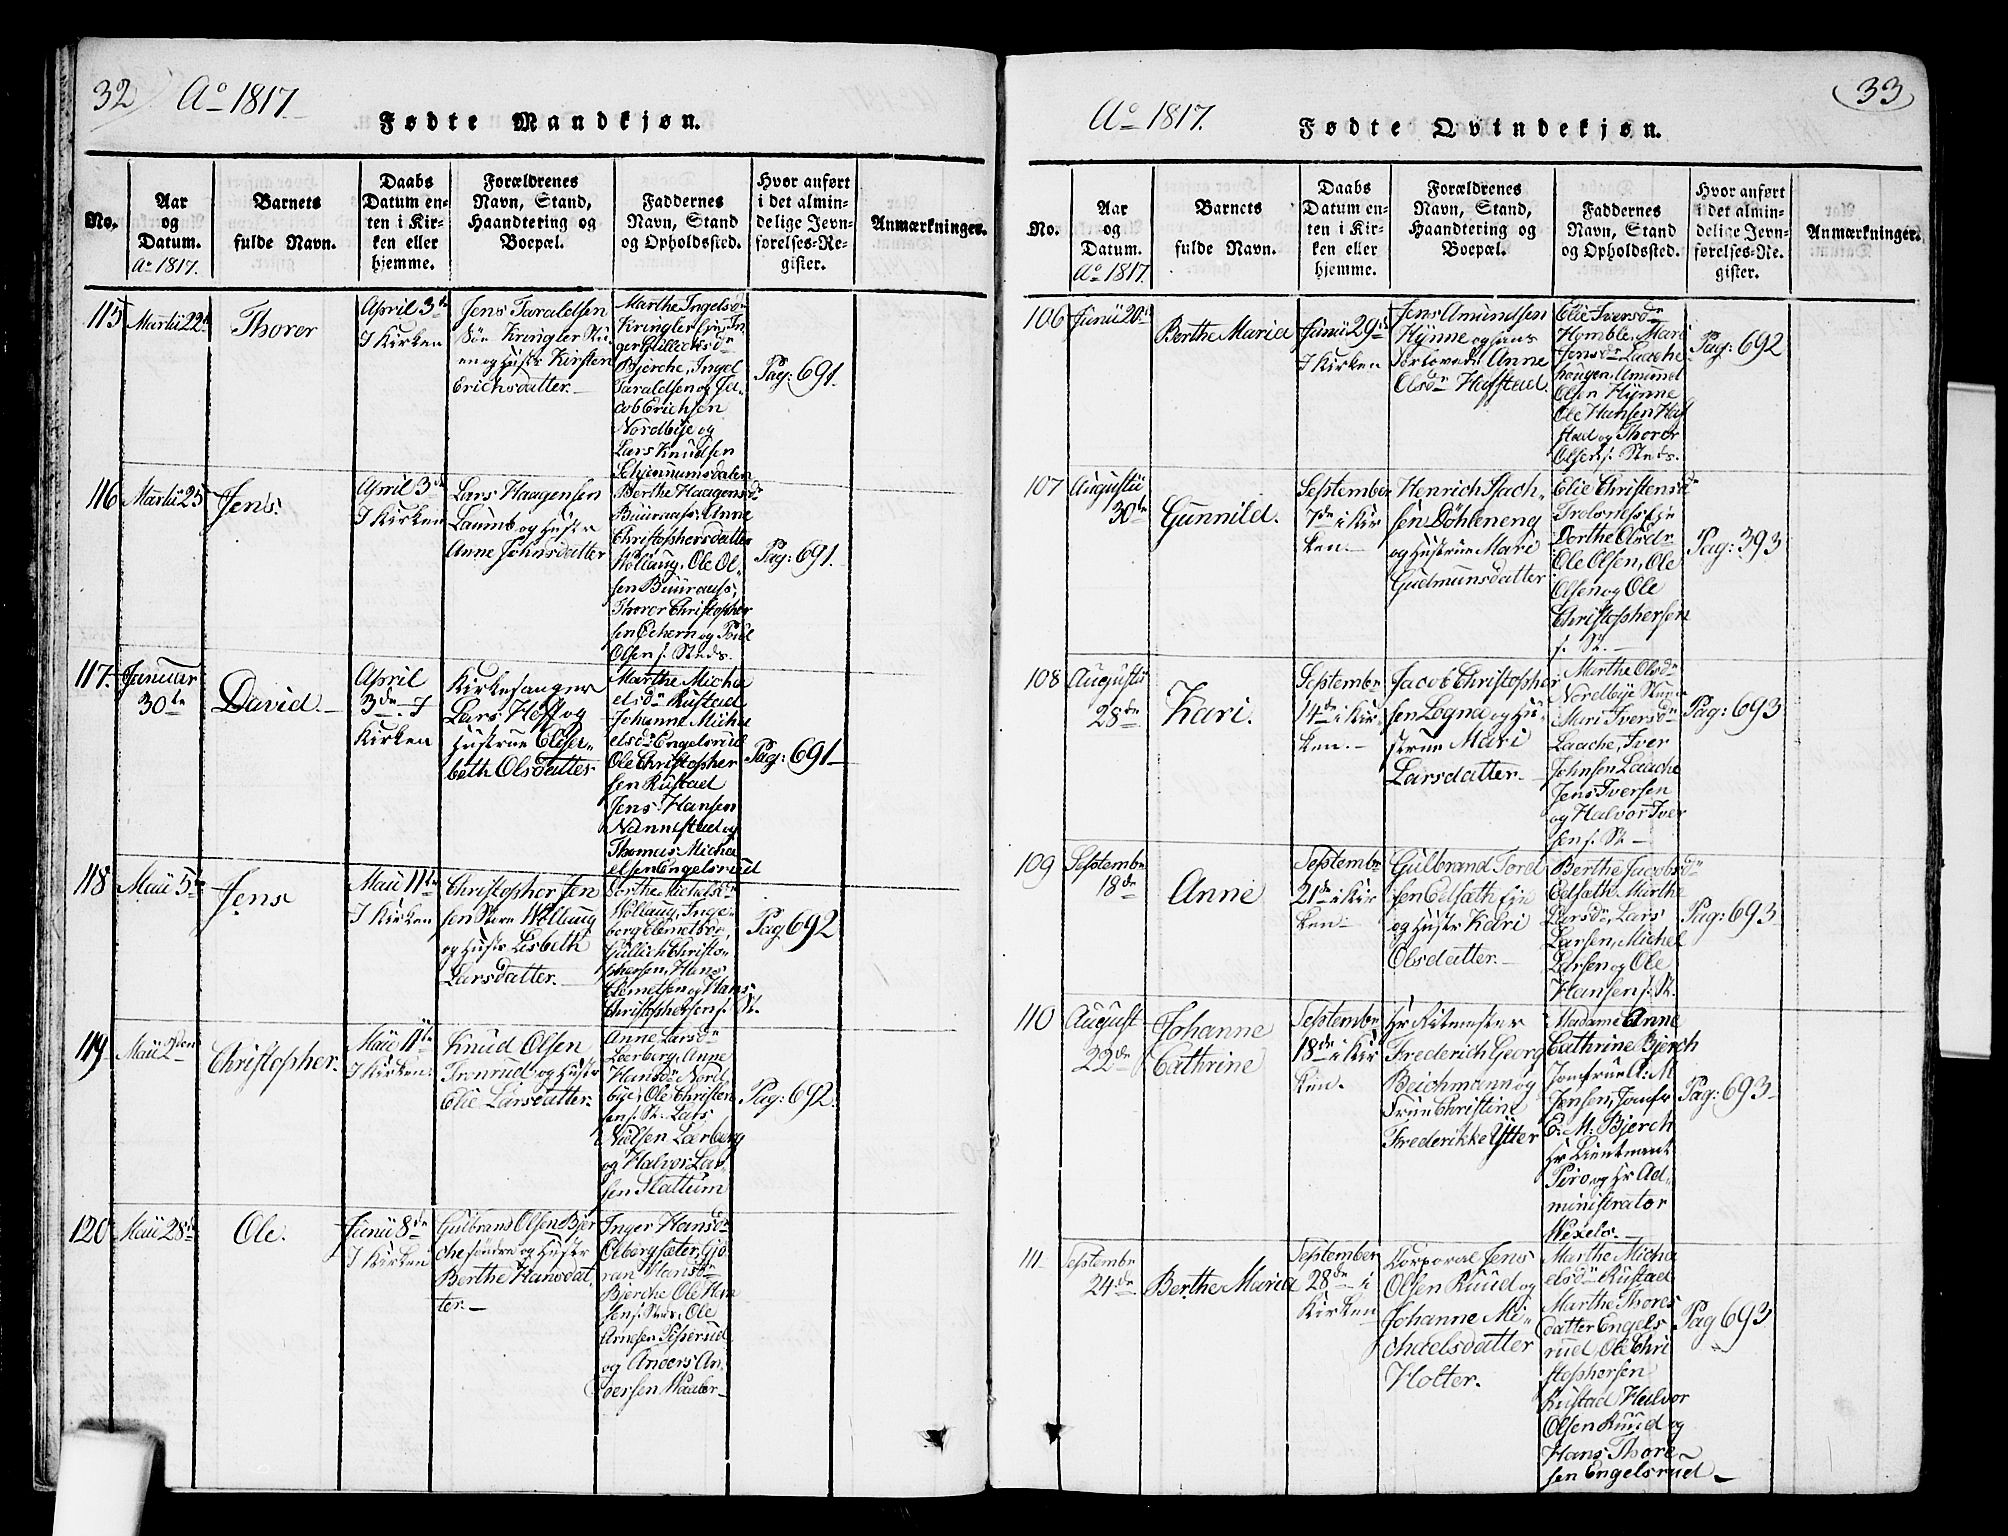 32
Ao 1817.
Fødte Mandkjøn.
No.
Aar
og
Datum.
Ao 1817.
Barnets
fulde Navn.
Daabs
Datum en-
ten i Kir-
ken eller
hjemme.
Forældrenes
Navn, Stand,
Haandtering og
Boepæl.
Faddernes
Navn, Stand
og Opholdssted.
Hvor anført
i det almin-
delige Jevn-
førelses-Re-
gister.
Anmærkninger.
115
Martii 22de
Thorer
April 3de
I Kirken
Jens Taraldsen
Kringler
og Hustr Kirsten
Erichsdatter.
Marthe Ingelsdr
Kringler
Bjerche, Ingel
Taraldsen og Ja-
cob Erichsen
Nordbye og
Lars Knudsen
Schjennumsdalen
Pag: 691.
116
Martii 25
Jens.
April 3de
I Kirken
Lars Haagensen
Laumb og Hustr
Anne Johnsdatter
Berthe Haagensdr
Buuraas, Anne
Christophersdatter
Wollaug, Ole Ol-
sen Buuraas,
Thoror Christopher
sen Echern og Poul
Olsen s. Steds.
Pag: 691.
117.
Januar
30te
David
April
3de I
Kirken
Kirkesanger
Lars Hoff og
Hustrue Elisa-
beth Olsdatter
Marthe Micha
elsdr Rustad
Johanne Micha
elsdr Engelsrud
Ole Christopher
sen Rustad
Jens Hansen
Nannestad og
Thomas Micha
elsen Engelsrud
Pag: 691
118
Maii 5te
Jens
Maii 11te
I Kirken
Christopher Jen
sen Store Wollaug
og Hustr Lisbeth
Larsdatter.
Wollaug, Inge-
borg Clemetsdr,
Gullich Christo-
phersen, Hans
Clemetsen og Hans
Christophersen s. St.
Pag 692
119
Maii 2den
Christopher.
Maii 11te
I Kirken
Knud Olsen
Tronrud og Hustr
Elie Larsdatter.
Anne Larsdr
Lærberg, Anne
Hansdr Nord-
bye, Ole Christen
sen s. St. Lars
Nielsen Lærberg
og Halvor Lar-
sen Slattum
Pag: 692.
120
Maii 28de
Ole.
Junii 8de
I Kirken
Gulbrand Olsen Bjer
che søndre og Hustr
Berthe Hansdat-
ter.
Inger Hansdr
Eeborgsæter, Gjø
ran Hansdr
Bjerche Ole Han
sen s. Steds, Ole
Arnesen Tesserud
og Anders An-
dersen Maaler
33
Ao 1817.
Fødte Qvindekjøn.
No.
Aar
og
Datum.
Ao 1817
Barnets
fulde Navn.
Daabs
Datum en-
ten i Kir-
ken eller
hjemme.
Forældrenes
Navn, Stand,
Haandtering og
Boepæl.
Faddernes
Navn, Stand
og Opholdssted.
Hvor anført
i det almin-
delige Jevn-
førelses-Re-
gister.
Anmærkninger.
106
Junii 20de
Berthe Maria
Junii 29de
I Kirken
Jens Amundsen
Hynne og hans
Forlovede Anne
Olsdr Hafstad.
Elie Iversdr
Homble, Mari
Jensdr Laache
haugen, Amund
Olsen Hynne
Ole Hansen Haf
stad og Thoror
Olsen s. Steds.
Pag: 692
107
Augustii
30te
Gunnild.
September
7de i Kir
ken.
Henrich Isach-
sen Döhleneng
og Hustrue Mari
Gudmunsdatter
Elie Christensdr
Dorthe Olsdr
Ole Olsen, Ole
Olsen og Ole
Christophersen
s. St.
Pag: 393
108
Augustii
28de
Kari.
Septembr
14de i Kir
ken.
Jacob Christopher
sen Logna og Hu-
strue Mari
Larsdatter.
Marthe Olsdr
Nordbye
Mari Iversdr
Laache, Iver
Johnsen Laache
Jens Iversen
og Halvor Iver
sen s. St
Pag: 693
109
Septembr
18de
Anne
Septembr
21de i Kir
ken
Gulbrand Tord
sen Eelsæth Eie
og Hustr Kari
Olsdatter.
Berthe Jacobsdr
Eelsæth, Marthe
Larsdr, Lars
Larsen, Michel
Larsen og Ole
Hansen s. St.
Pag: 693
110
August
22de
Johanne
Cathrine
Septembr
18de i Kir
ken.
Hr Ritmester
Frederich Georg
Beichmann og
Frue Christine
Frederikke Ytter
Madame Anne
Cathrine Bjerch
Jomfrue A: M
Jensen, Jomfr
E. M: Bjerch
Hr Lieutnant
Piro og Hr Ad-
ministrator
Wexels.
Pag: 693
111
Septembr
24de
Berthe Maria
September
28de i
Kirken
Corporal Jens
Olsen Ruud og
Johanne Mi-
chaelsdatter
Holter.
Marthe Micha
elsdr Rustad
Marthe Thores
datter Engels
rud, Ole Chri
stophersen
Rustad Halvor
Olsen Ruud og
Hans Thore-
sen Engelsrud
Pag 693